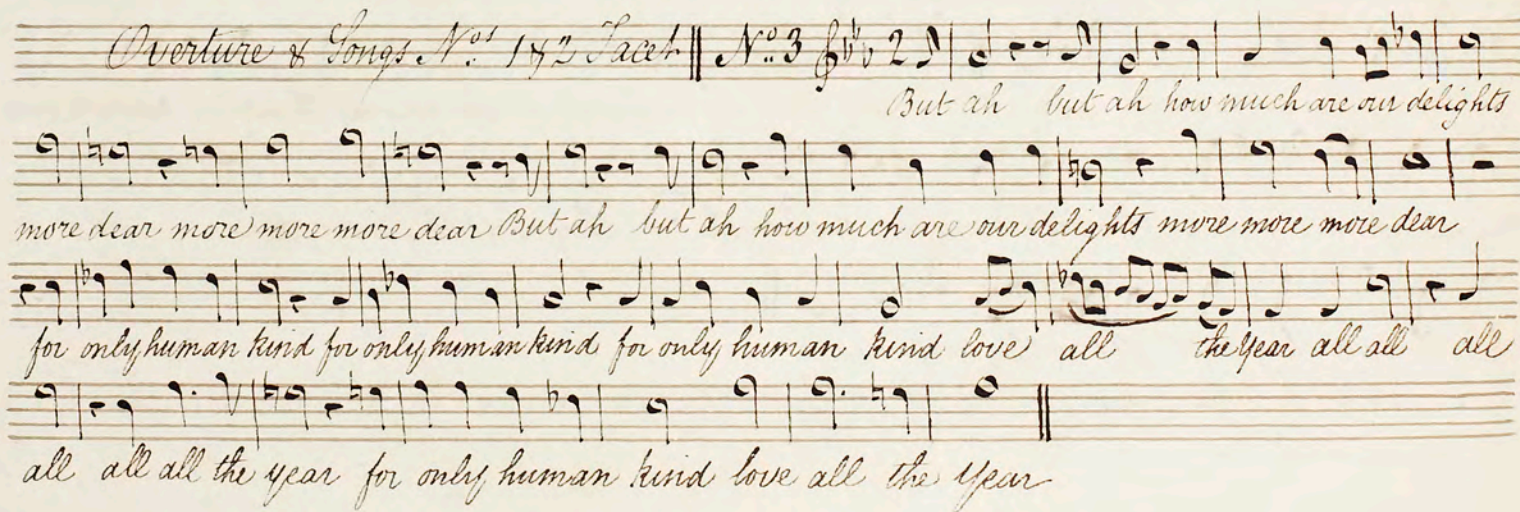 Overture & Songs Nos. 1 & 2 Tacet No. 3 2
But ah but ah how much are our delights
more dear more more more dear But ah but ah how much are our delights more more more dear
for only human kind for only human kind for only human kind love all the Year all all all
all all all the year for only human kind love all the Year